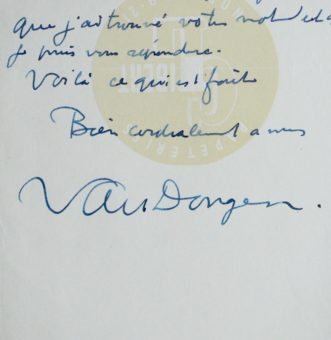 que j'ai trouvé votre mot et
je puis vous répondre.
Voilà ce qui est fait
Bien cordialement à vous
Van Dongen.
PAPETERIE